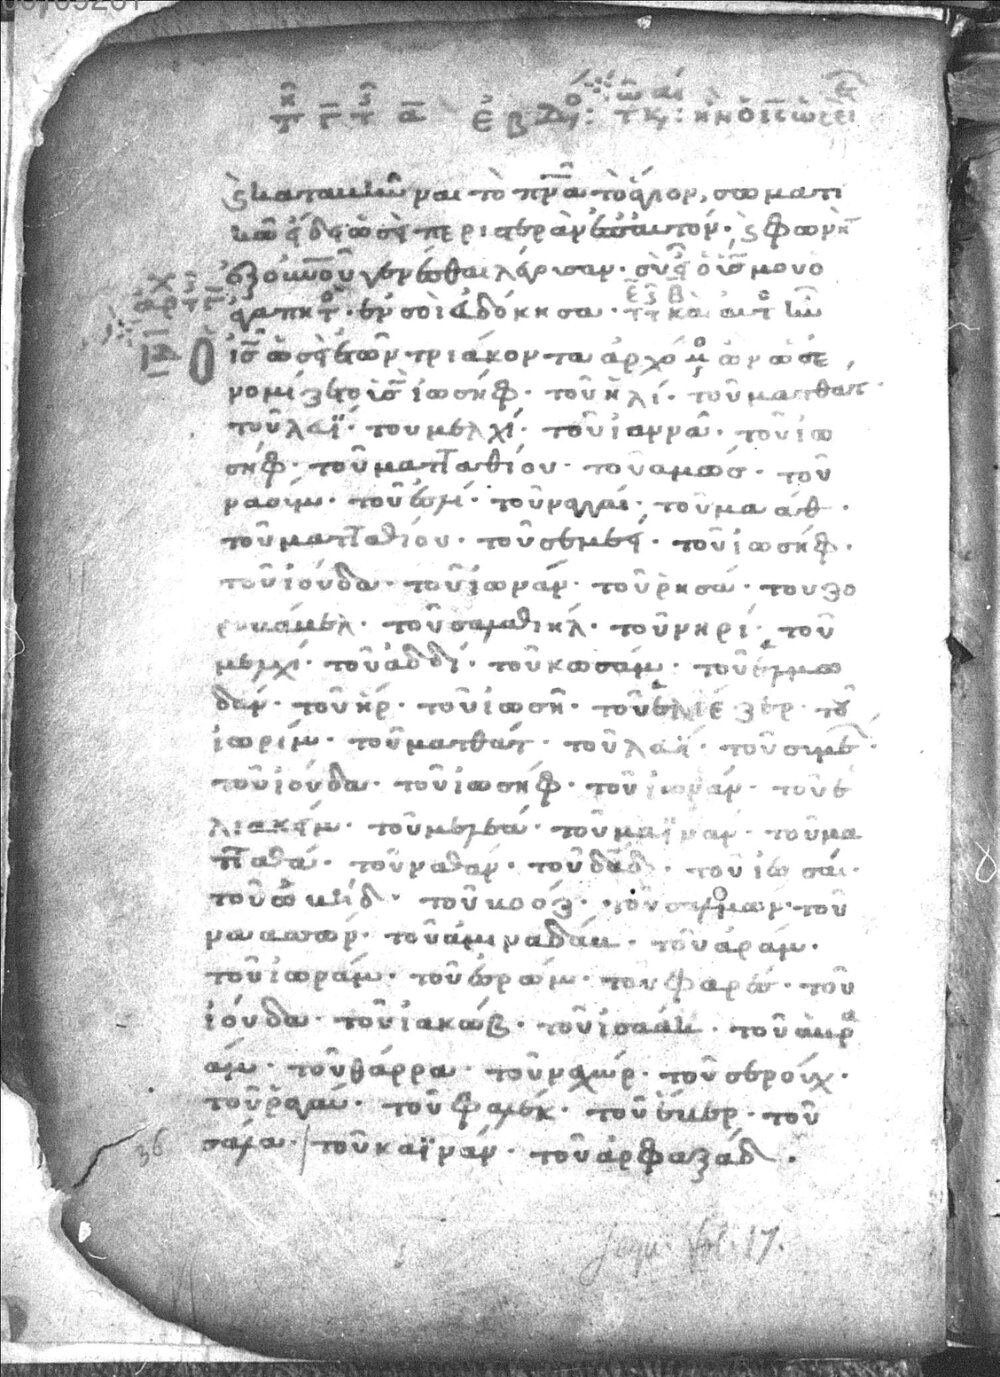 καταβῆναι τὸ πνα τὸ ἅγιον, σωματι
κῶ εἴδει ὡσεὶ περιστερὰν ἐπ αὐτόν· φωνὴ
ἐξ οὐνοῦ γενέσθαι λέγουσαν· σὺ εἶ ὁ υἱσ μου ὁ
ἀγαπητ· ἐν σοὶ εὐδόκησα·
ὁ ισ ὡσεὶ ἐτῶν τριάκοντα ἀρχόμ ὢν ὡσ ἐ
νομίζετο υἱσ ἰωσήφ· τοῦ ἠλί· τοῦ ματθατ
τοῦ λευΐ· τοῦ μελχί· τοῦ ἰαννᾶ· τοῦ ἰω
σήφ· τοῦ ματταθίου· τοῦ αμωσ· τοῦ
ναουμ· τοῦ ἐσλί· τοῦ ναγγαί· τοῦ μαάθ·
τοῦ ματταθίου· τοῦ σεμεεί· τοῦ ἰωσήφ·
τοῦ ἰούδα· τοῦ ἰωνάν· τοῦ ῥησά· του ζο
ροβάβελ· τοῦ σαλαθιήλ· τοῦ νηρί· τοῦ
μελχί· τοῦ ἀδδί· τοῦ κωσάμ· τοῦ ἐλμω
δάμ· τοῦ ἤρ· τοῦ ἰωσῆ· τοῦ ἐλιέζερ· τοῦ
ἰωρίμ· τοῦ ματθάτ· τοῦ λευΐ· τοῦ συμε·
τοῦ ἰούδα· τοῦ ἰωσήφ· τοῦ ἰωνάν· τοῦ ἐ
λιακείμ· τοῦ μελεᾶ· τοῦ μαϊνάν· τοῦ μα
τταθά· τοῦ ναθάν· τοῦ δαδ· τοῦ ἰεσσαί·
τοῦ ὠβήδ· τοῦ βοόζ· τοῦ σαλμών· τοῦ
ναασσών· τοῦ ἀμιναδάβ· τοῦ ἀράμ·
τοῦ ἰωράμ· τοῦ ἐσρώμ· τοῦ φαρέσ· τοῦ
ἰούδα· τοῦ ἰακώβ· τοῦ ἰσαάκ· τοῦ ἀβρα
άμ· τοῦ θάρρα· τοῦ ναχώρ· τοῦ σερούχ·
τοῦ ῥαγαύ· τοῦ φαλέκ· τοῦ ἕβερ· τοῦ
36 σαλα· τοῦ καϊνάν· τοῦ ἀρφαξάδ·
fol. 17.